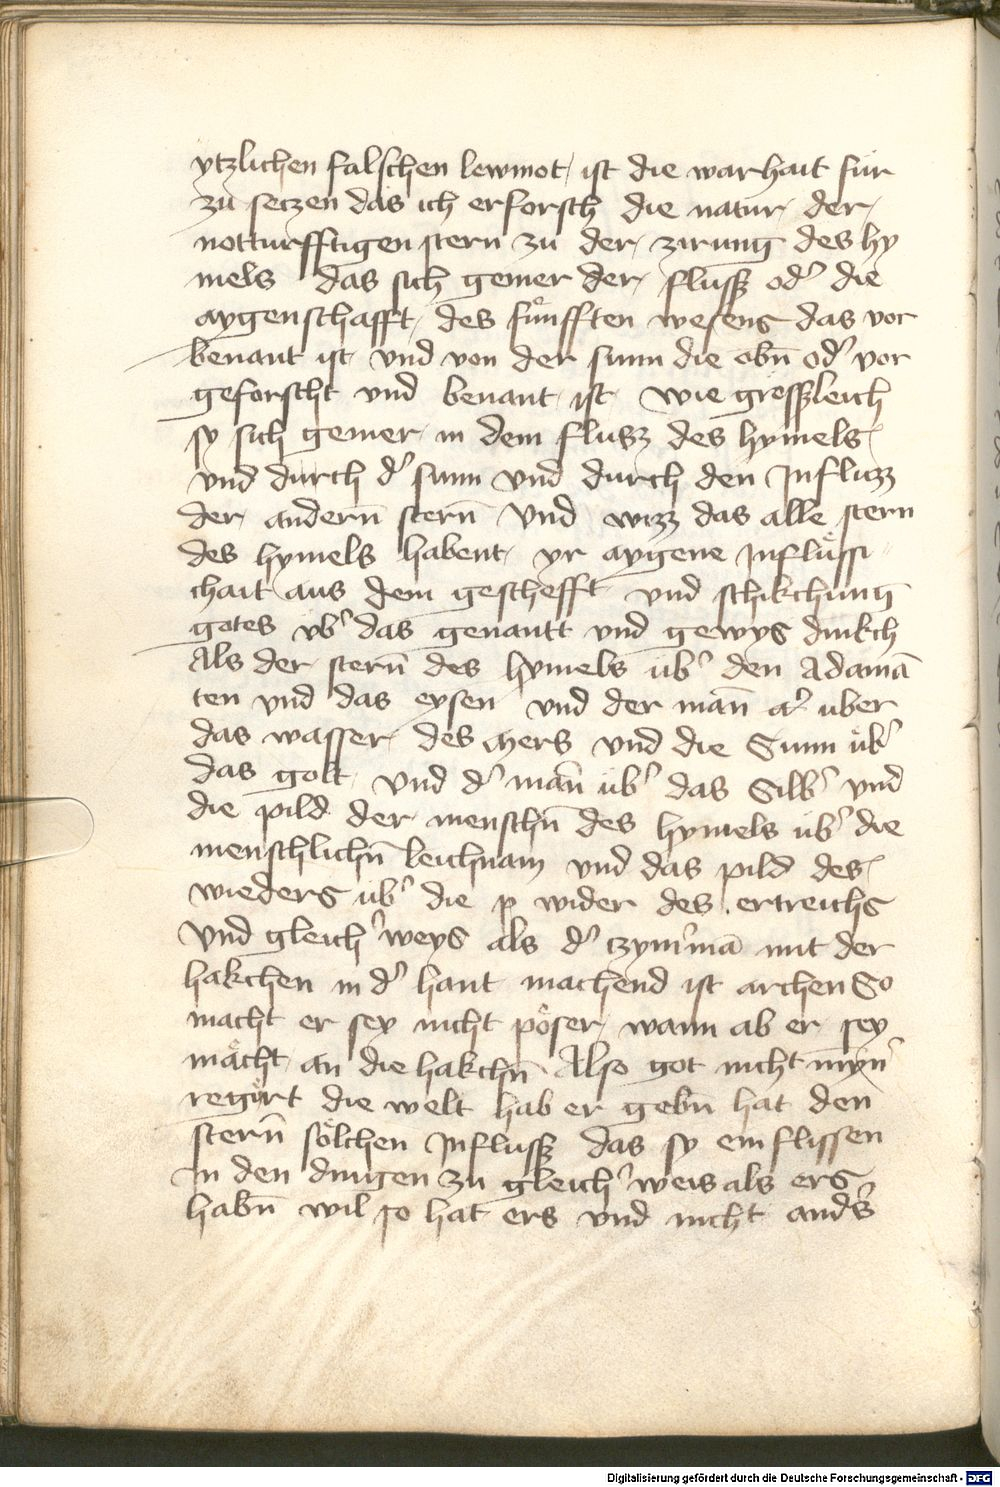 ytzlichen falschen lewmot ist die warhait für
zu seczen das ich erforsch die natur der
notturfftigen stern zu der zirung des hy
mels das sich gemer der flussz od' die
aygenschafft des fünfften wesens das vor
benant ist vnd von der sunn die obn̄ od' vor
geforscht vnd benant ist wie gressleich
sy sich gemer in dem flusz des hymels
vnd durch d' sunn vnd durch den Influzz
der andern̄ stern̄ Vnd wizz das alle stern
des hymels habent yr aygene Inflüssi
chait aus dem geschefft vnd schikchung
gotes vb' das genantt vnd gewys dinkch
Als der stern̄ des hymels üb' den Adamā
ten vnd das eysen vnd der man̄ über
das wasser des mers vnd die Sunn üb'
das golt vnd d' man̄ üb' das Silb' vnd
die pild der menschn̄ des hymels üb' die
menschlichn̄ leichnam vnd das pild des
wieders üb' die p wider des ertreichs
Vnd gleich' weys als d' czym'mā mit der
hakchen in d' hant machend ist archen So
macht er sey nicht pöser wann ab er sey
mächt an die hakchn̄ Also got nicht myn'
regirt die welt hab er gebn̄ hat den
stern̄ sölchen Influssz das sy einflissen
In den dingen zu gleich' weis als ers
habn̄ wil so hat ers vnd nicht and's
Digitalisierung gefördert durch die Deutsche Forschungsgemeinschaft - DFG